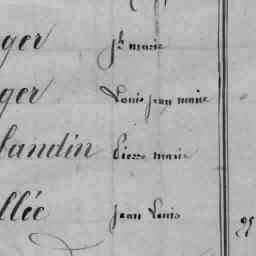 ger Jh marie
ger Louis jean marie
landin Pierre marie
llée jean Louis